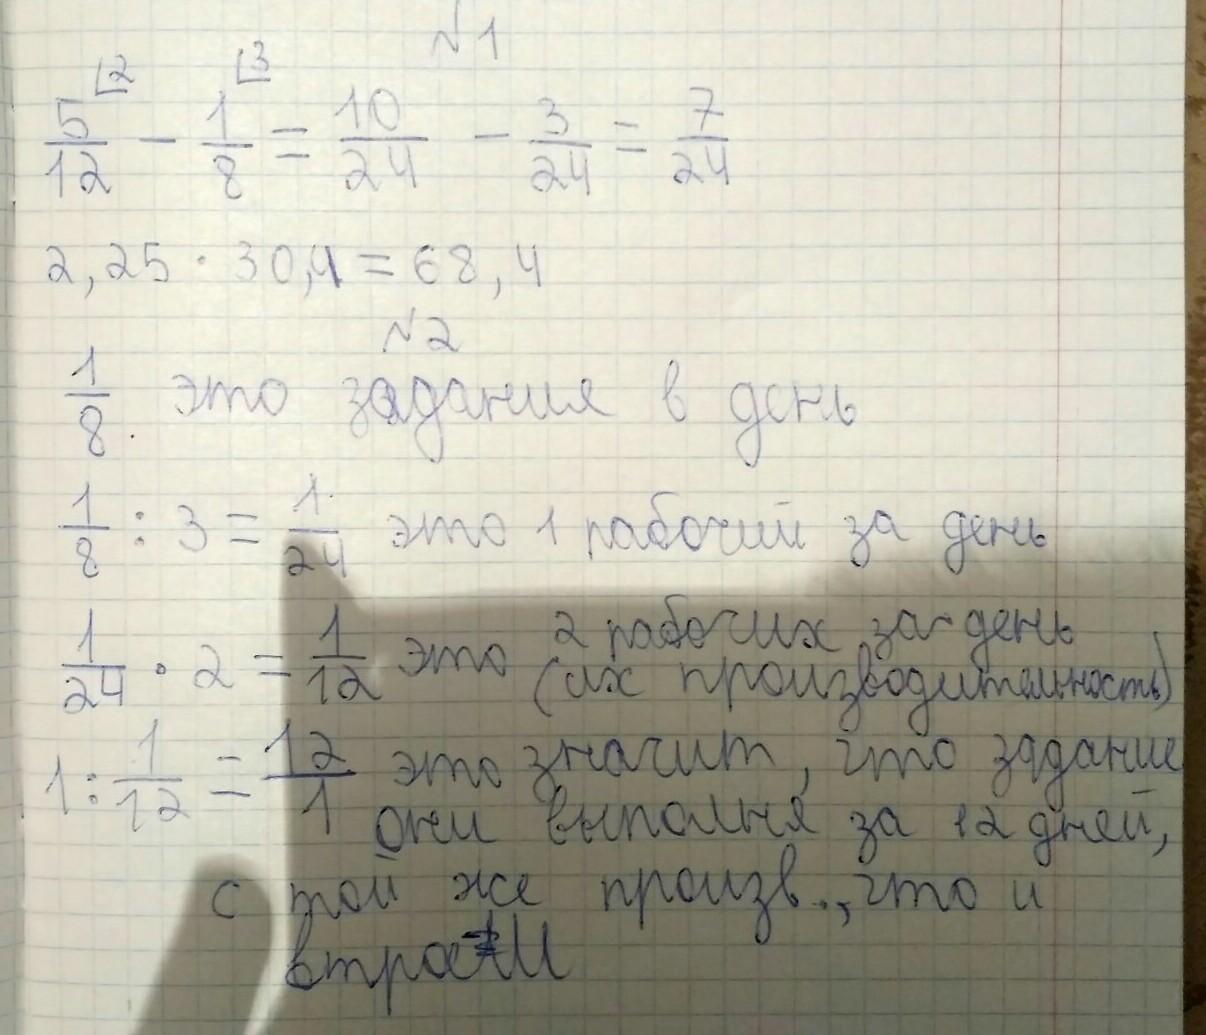 №1
5/12 ⌊2 − 1/8 ⌊3 = 10/24 − 3/24 = 7/24
2,25 · 30,4 = 68,4
№2
1/8 это задания в день
1/8 : 3 = 1/24 это 1 рабочий за день
1/24 · 2 = 1/12 это 2 рабочих за день
(их производительность)
1 : 1/12 = 12/1 это значит, что задание
они выполня за 12 дней,
с той же произв., что и